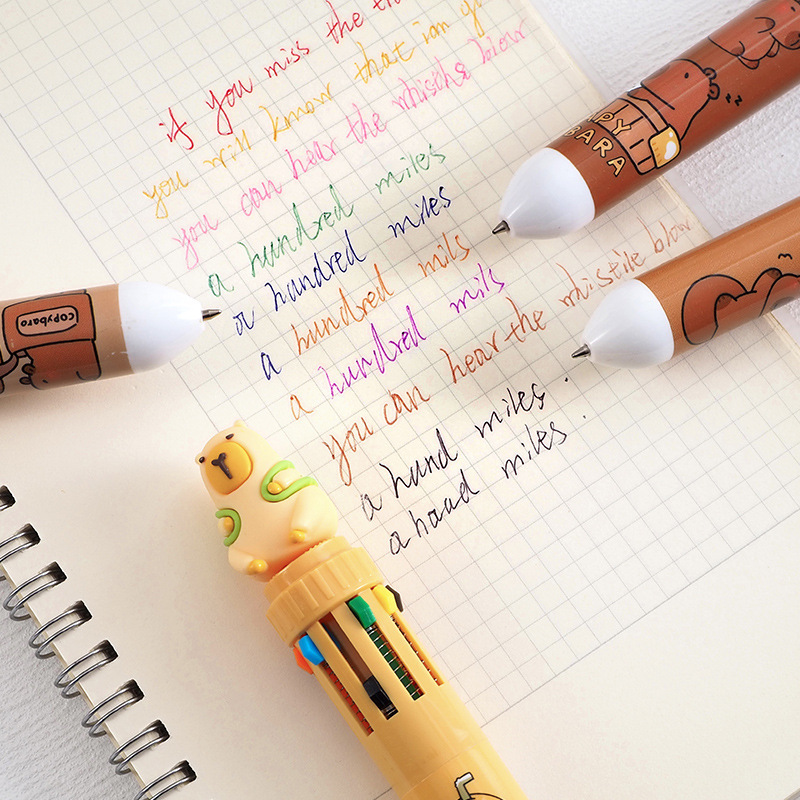 if you miss the
you will know that im
you can hear the whisths blow
a hundred miles
a handred miles
a hundred mils
a hundred mils
you can hear the whistile blow
a hund miles.
a haad miles.
COPYbaro
PY
BARA
zz